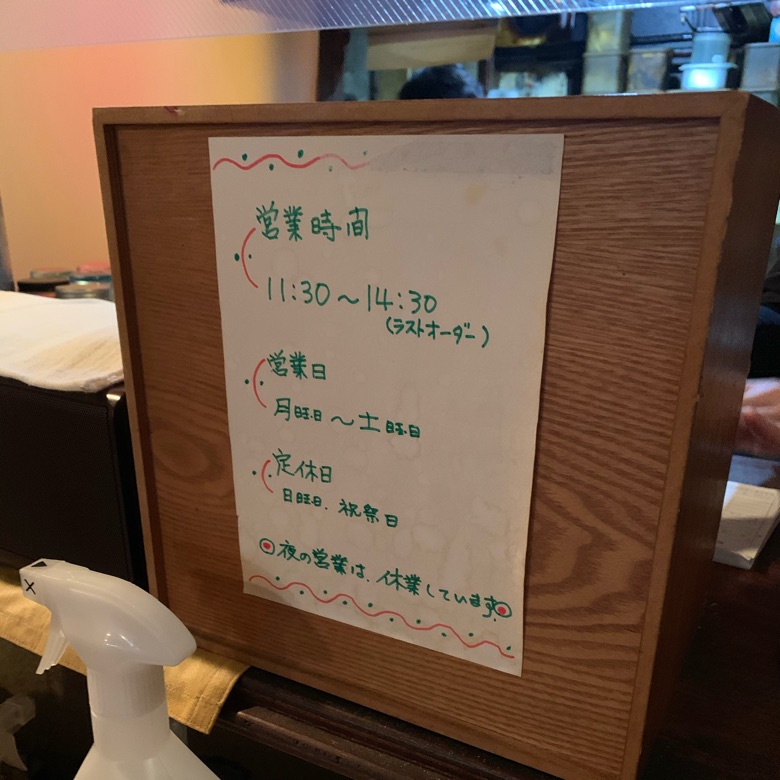 営業時間
11:30～14:30
(ラストオーダー)
営業日
月曜日～土曜日
定休日
日曜日、祝祭日
夜の営業は、休業しています。
X